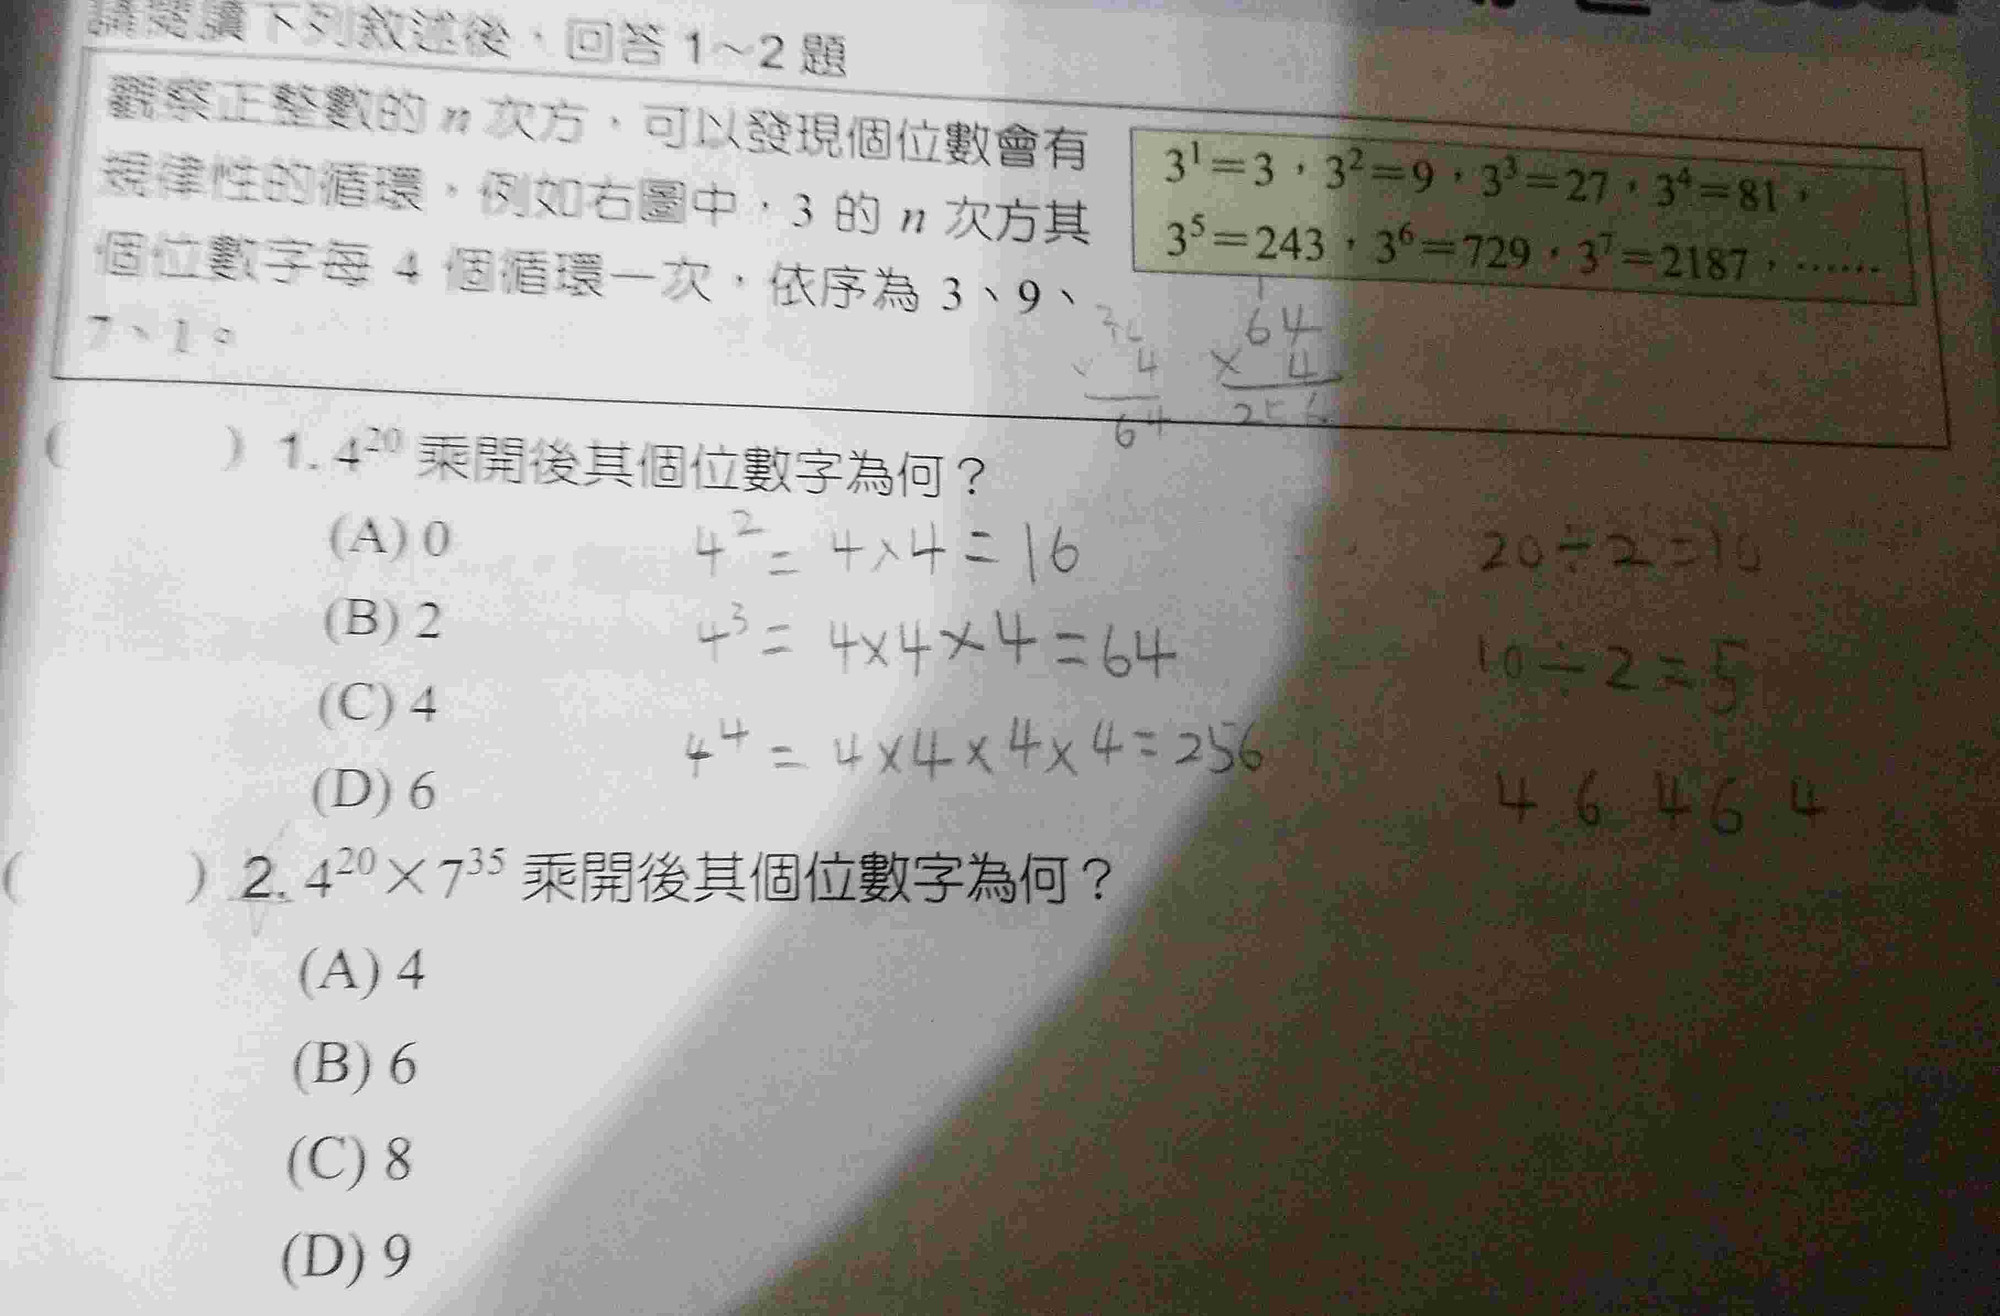 請閱讀下列敘述後，回答 1～2 題
觀察正整數的 n 次方，可以發現個位數會有
規律性的循環，例如右圖中，3 的 n 次方其
個位數字每 4 個循環一次，依序為 3、9、
7、1。
3¹＝3，3²＝9，3³＝27，3⁴＝81，
3⁵＝243，3⁶＝729，3⁷＝2187，……
4
64
64
× 4
256
( ) 1. 4²⁰ 乘開後其個位數字為何？
(A) 0
(B) 2
(C) 4
(D) 6
4² = 4×4 = 16
4³ = 4×4×4 = 64
4⁴ = 4×4×4×4 = 256
20÷2=10
10÷2=5
4 6 4 6 4
( ) 2. 4²⁰×7³⁵ 乘開後其個位數字為何？
(A) 4
(B) 6
(C) 8
(D) 9